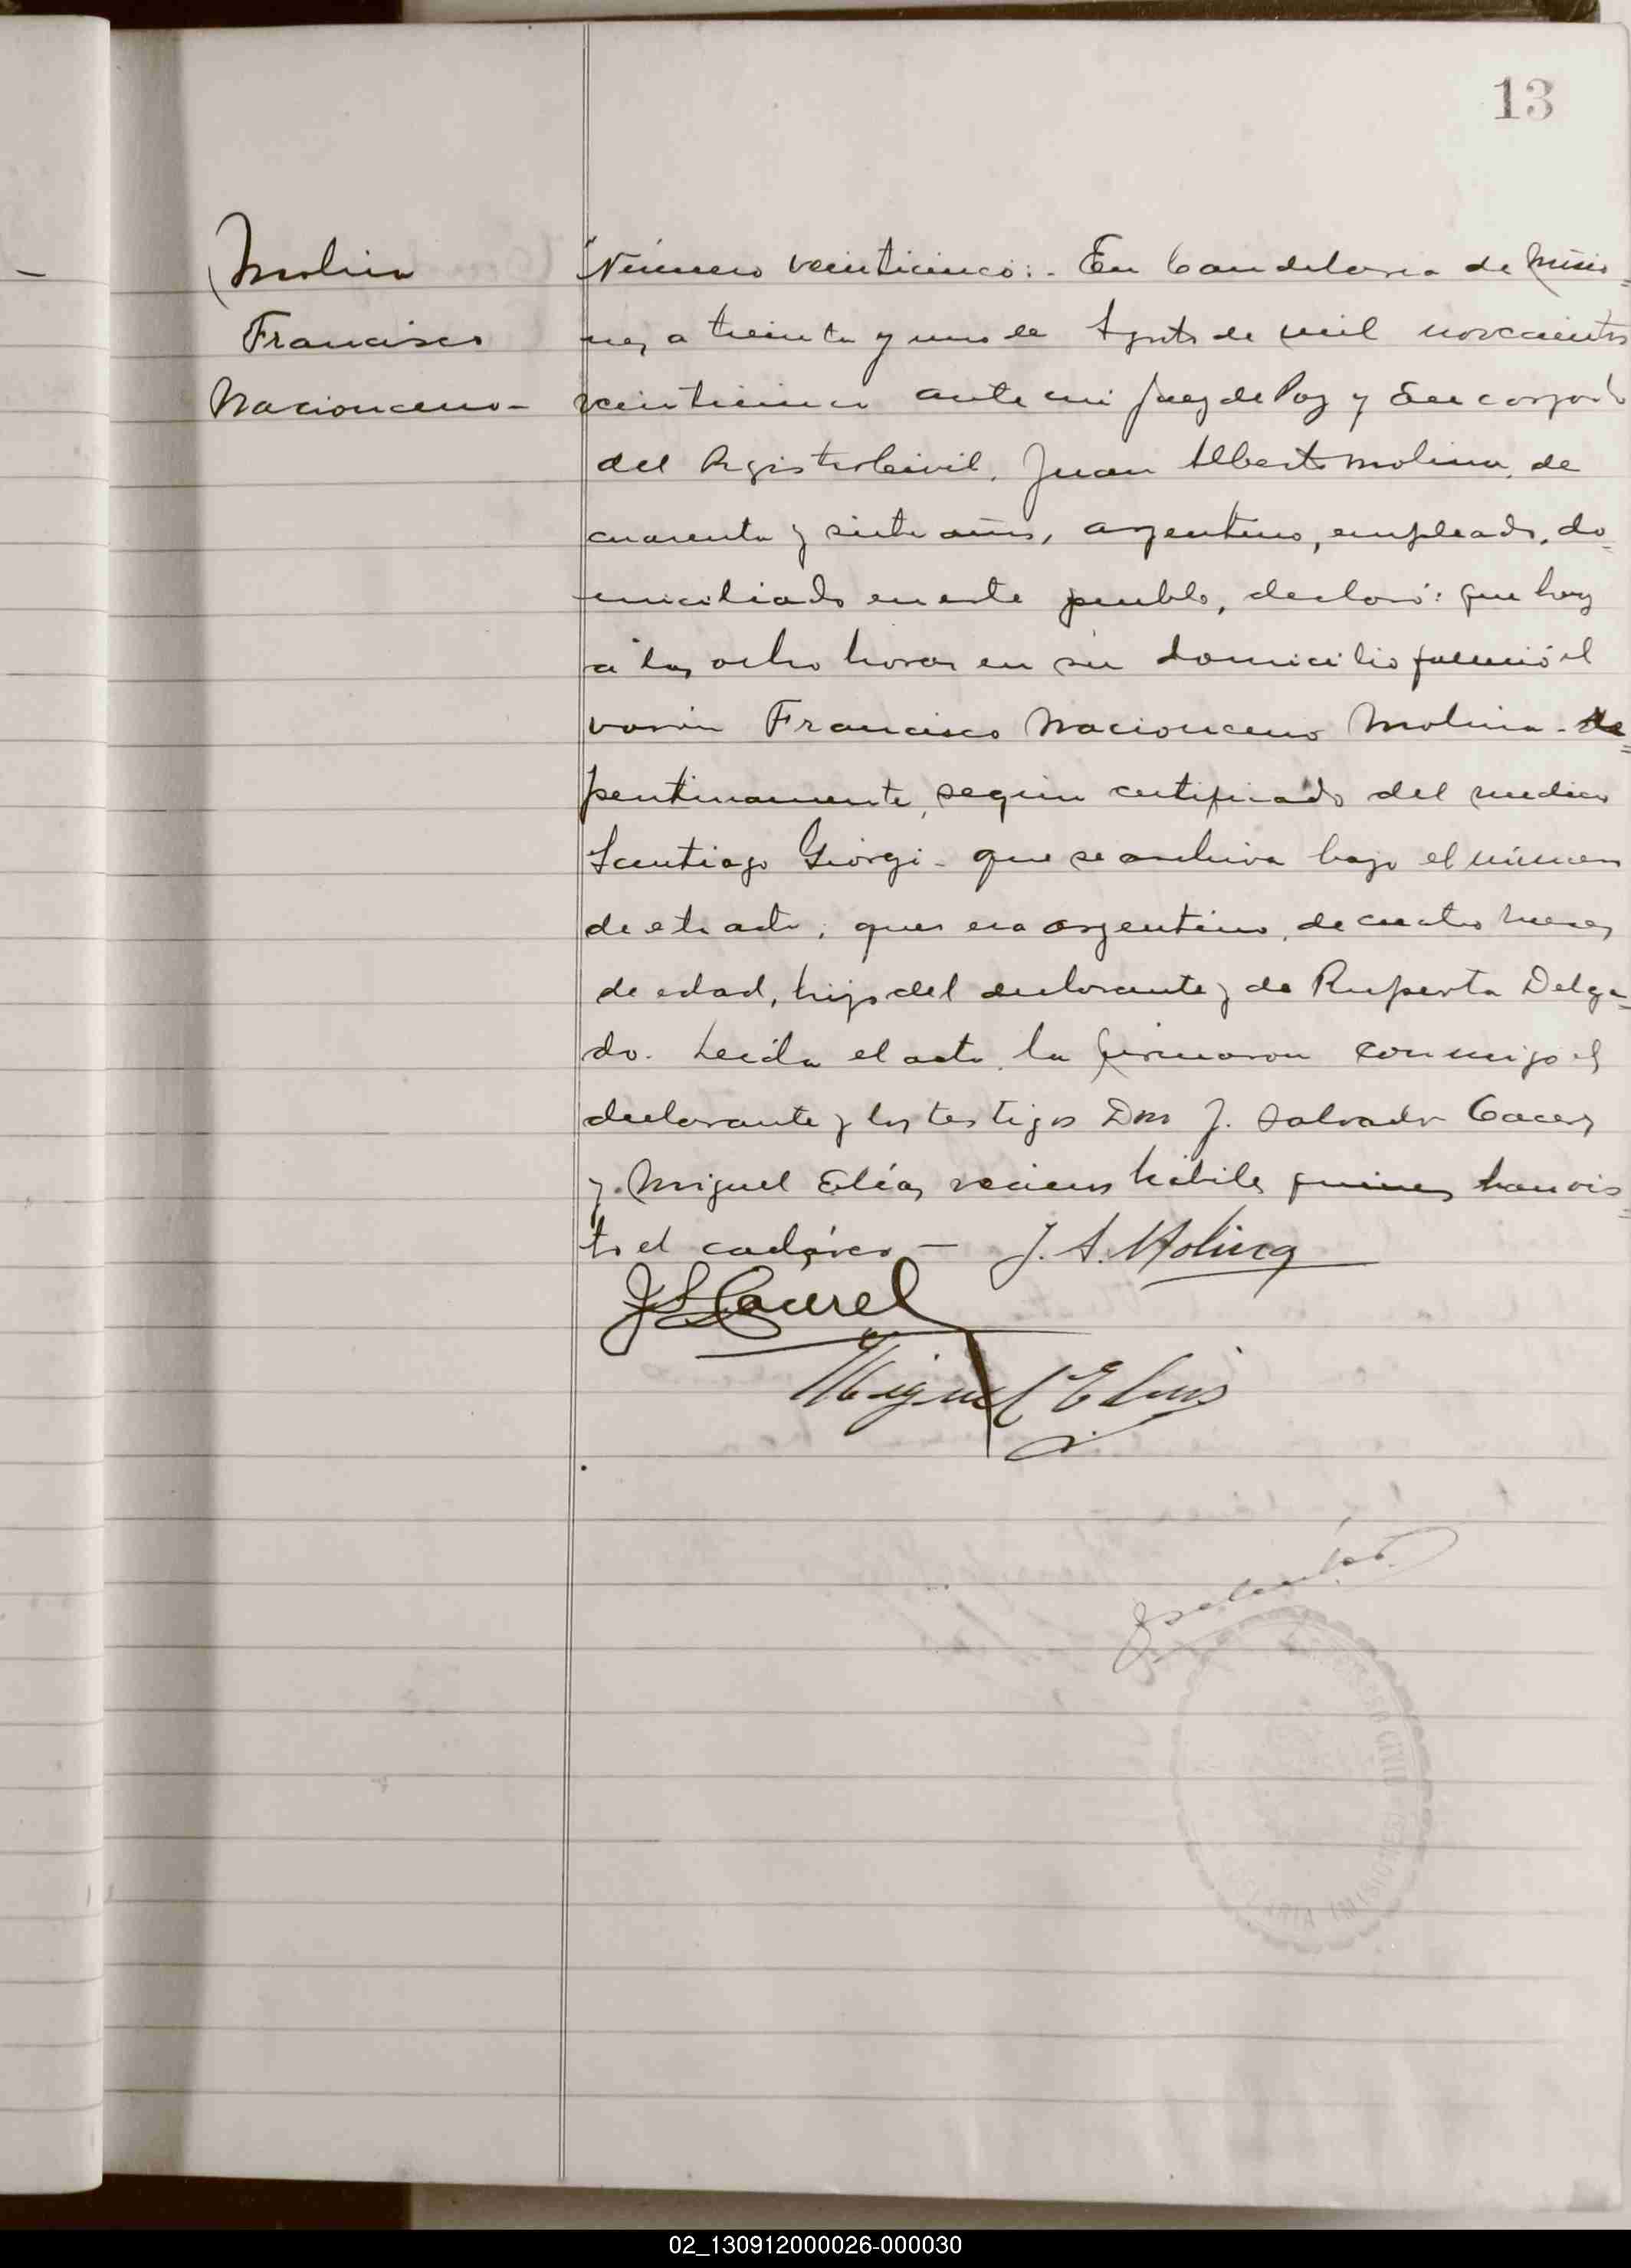 13
Molina
Francisco
Nacionceno-
Número veinticinco:- En Candelaria de Misio=
nes, a treinta y uno de Agosto de mil novecientos
veinticinco ante mi Juez de Paz y Encargado
del Registro Civil, Juan Alberto Molina, de
cuarenta y siete años, argentino, empleado, do=
miciliado en este pueblo, declaró: que hoy
a las ocho horas en su domicilio falleció el
varón Francisco Nacionceno Molina - Re=
pentinamente, según certificado del medico
Santiago Giorgi - que se archiva bajo el número
de este acto; que era argentino, de cuatro meses
de edad, hijo del declarante y de Ruperta Delga=
do. Leída el acta, la firmaron conmigo el
declarante y los testigos Don J. Salvador Caceres
y Miguel Elías, vecinos hábiles quienes han vis=
to el cadáver - J. A. Molina
Miguel Elias
02_130912000026-000030